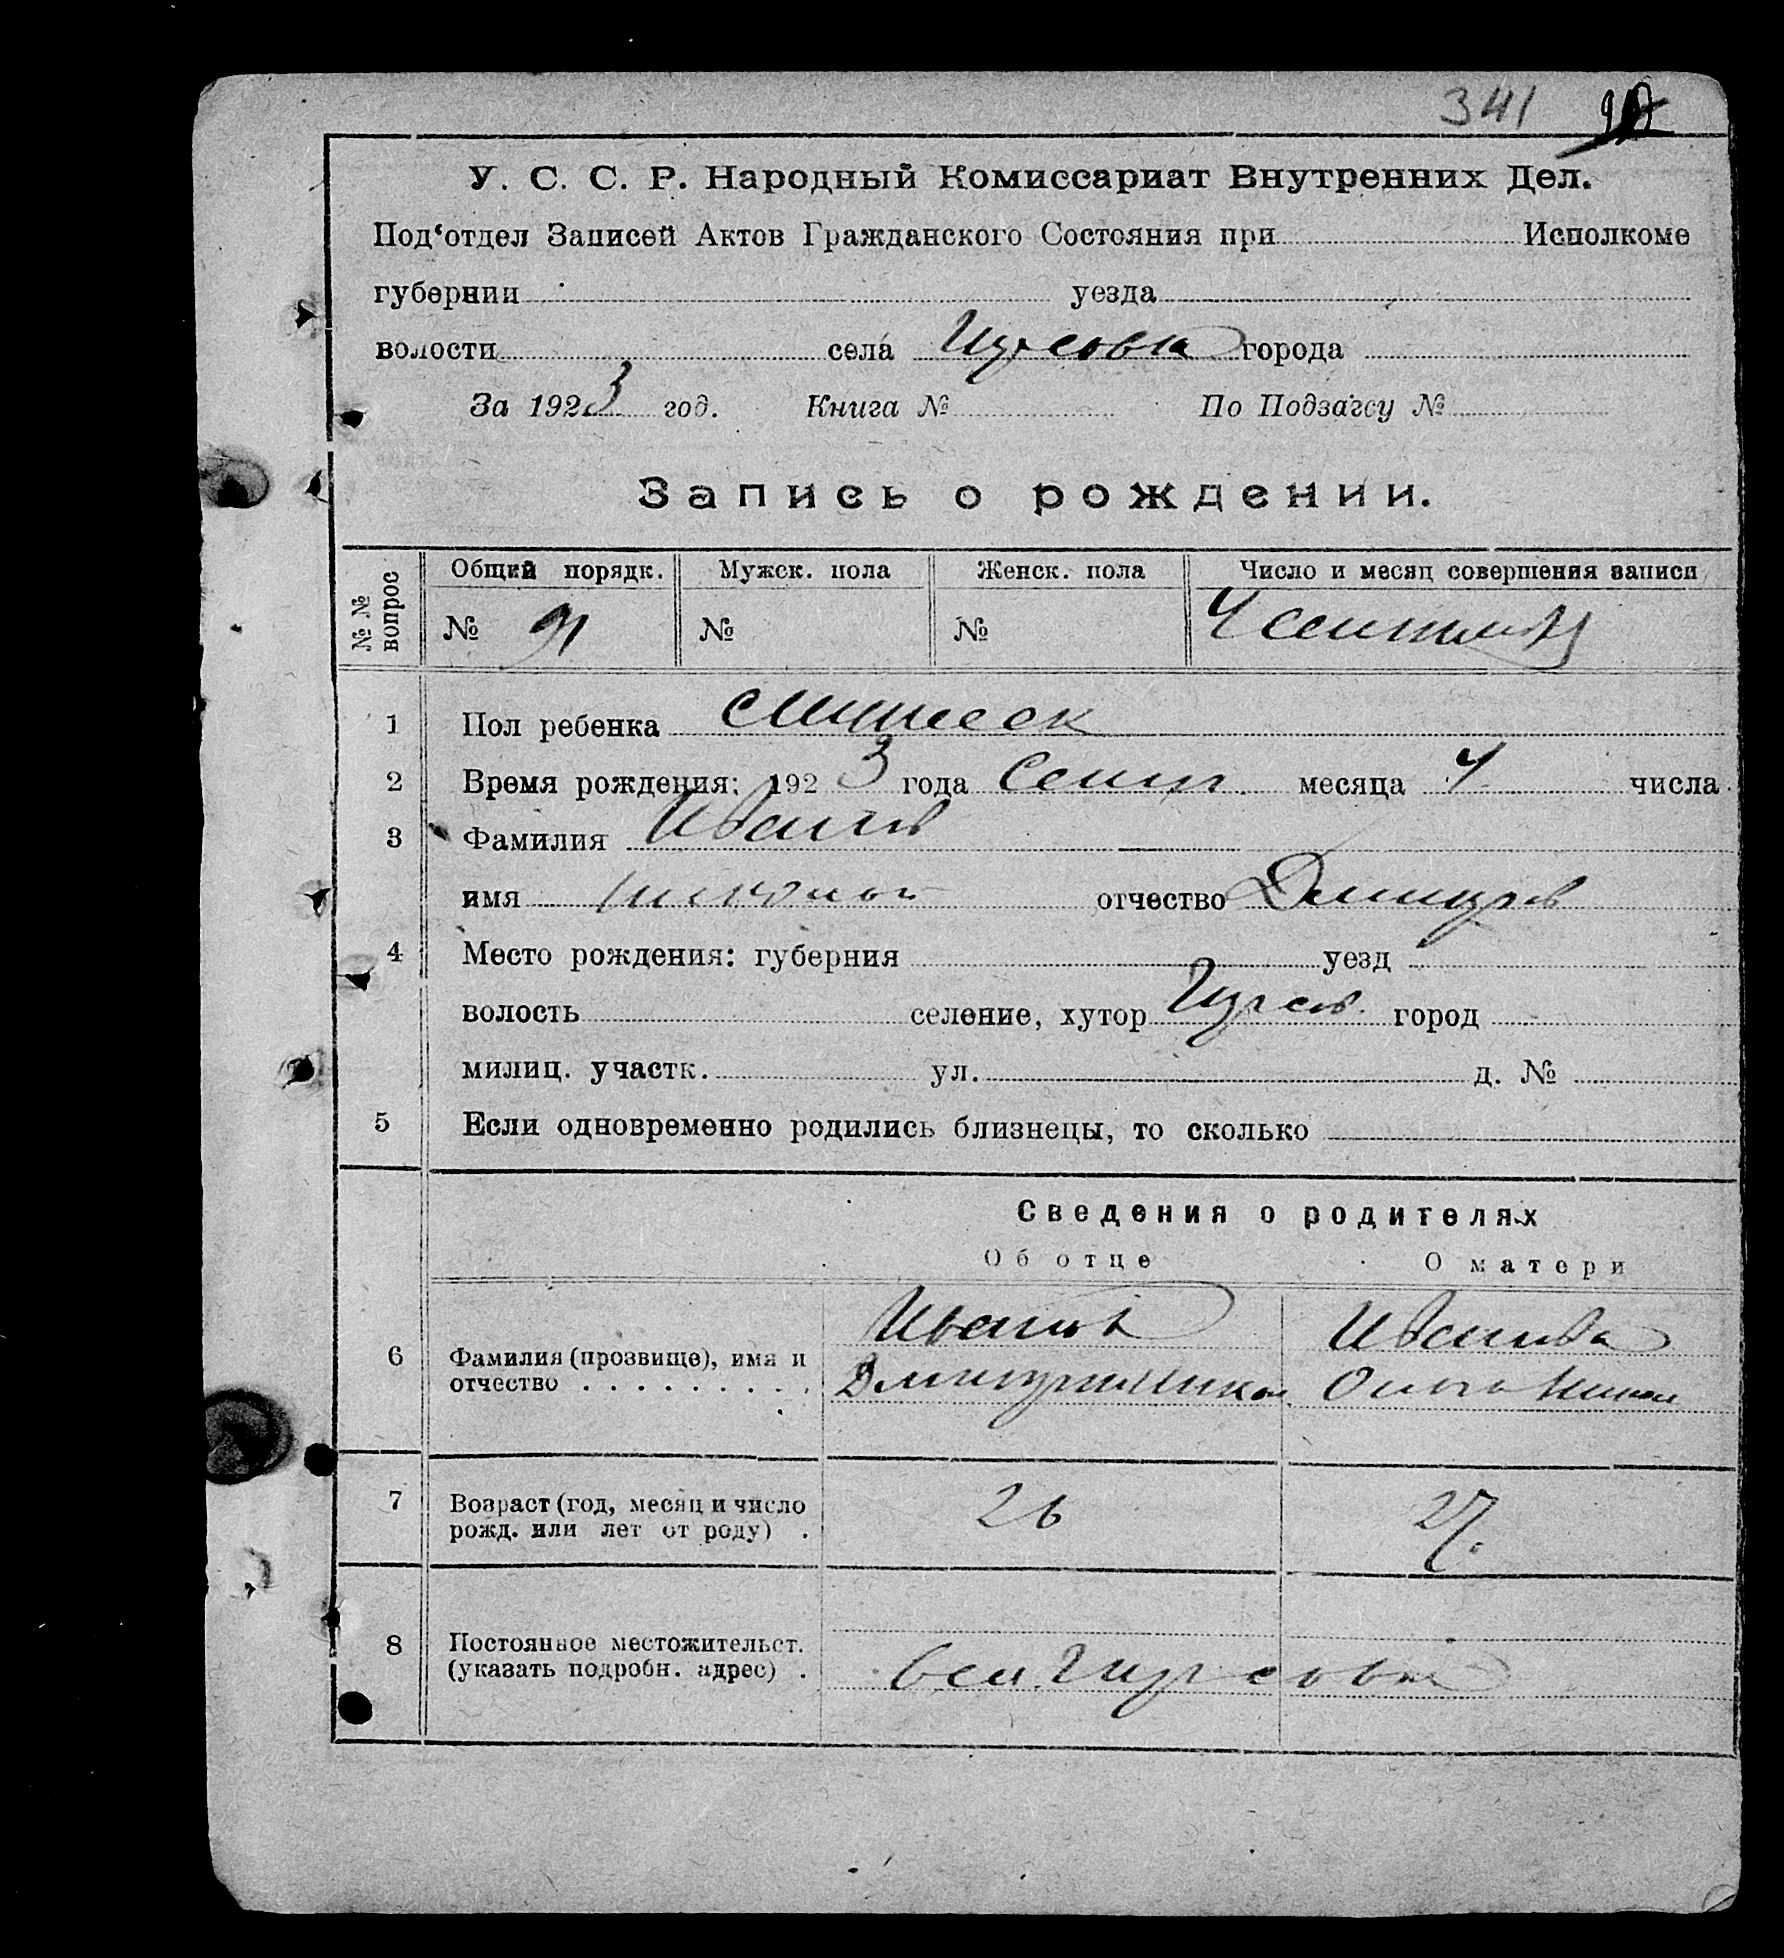 341
У. С. С. Р. Народный Комиссариат Внутренних Дел.
Под‘отдел Записей Актов Гражданского Состояния при Исполкоме
губернии уезда
волости села города
За 1923 год. Книга № По Подзагсу №
Запись о рождении.
№ № вопрос Общий порядк. Мужск. пола Женск. пола Число и месяц совершения записи
№ 91 № № 4
1 Пол ребенка
2 Время рождения: 1923 года Сент. месяца 4 числа
3 Фамилия Иванов
имя отчество Дмитров
4 Место рождения: губерния уезд
волость селение, хутор город
милиц. участк. ул. д. №
5 Если одновременно родились близнецы, то сколько
Сведения о родителях
Об отце О матери
6 Фамилия (прозвище), имя и Иванов Иванова
отчество
7 Возраст (год, месяц и число 26 27.
рожд. или лет от роду) .
8 Постоянное местожительст.
(указать подробн. адрес) .